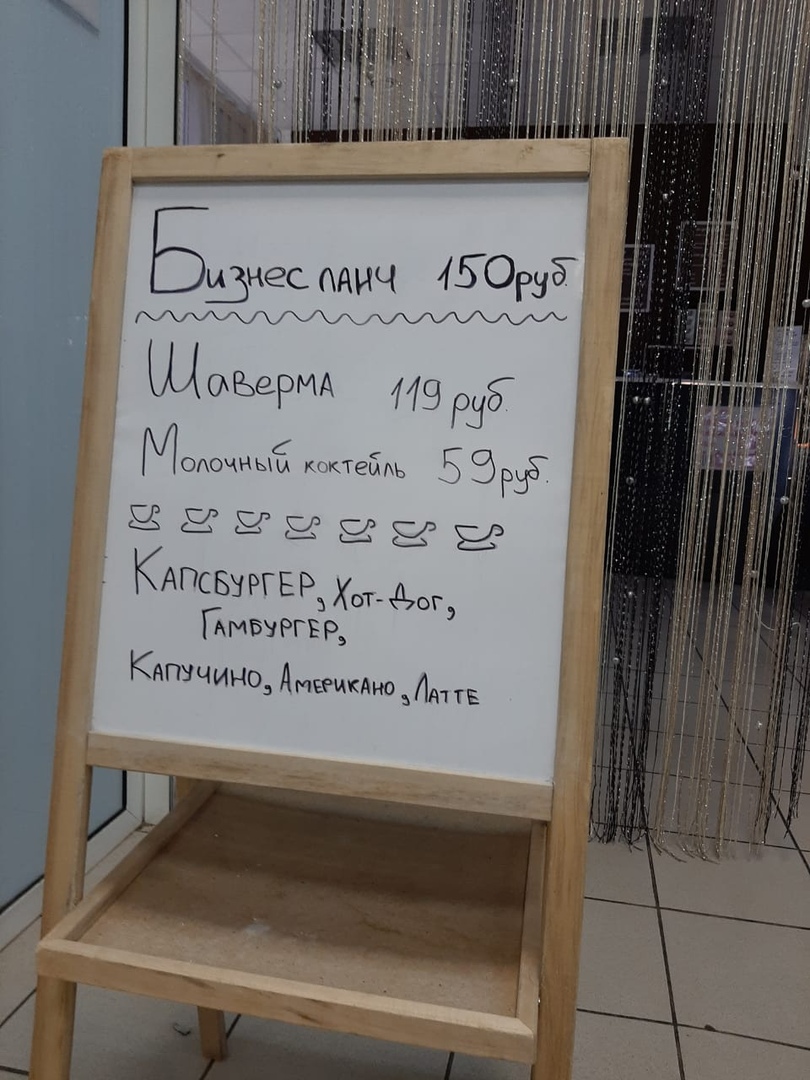 Бизнес ланч 150руб.
Шаверма 119 руб.
Молочный коктейль 59руб.
КАПСБУРГЕР, ХОТ-ДОГ,
ГАМБУРГЕР,
КАПУЧИНО, АМЕРИКАНО, ЛАТТЕ